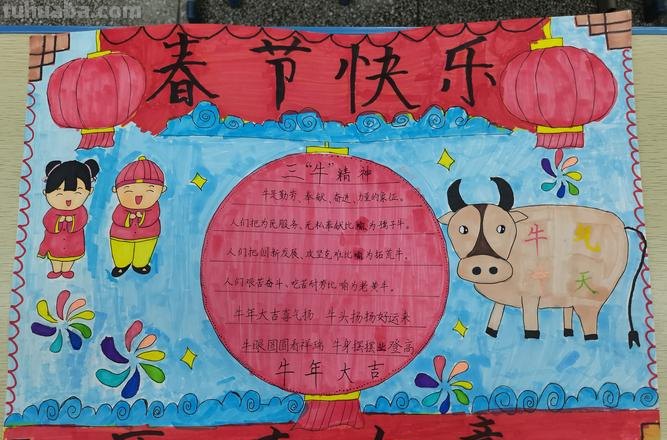 tuhuaba.com
春节快乐
三“牛”精神
牛是勤劳、奉献、奋进、力量的象征。
人们把为民服务、无私奉献比喻为孺子牛。
人们把创新发展、攻坚克难比喻为拓荒牛。
人们艰苦奋斗、吃苦耐劳比喻为老黄牛。
牛年大吉喜气扬 牛头扬扬好运来
牛眼圆圆看祥瑞 牛身摆摆业登高
牛年大吉
牛气
天